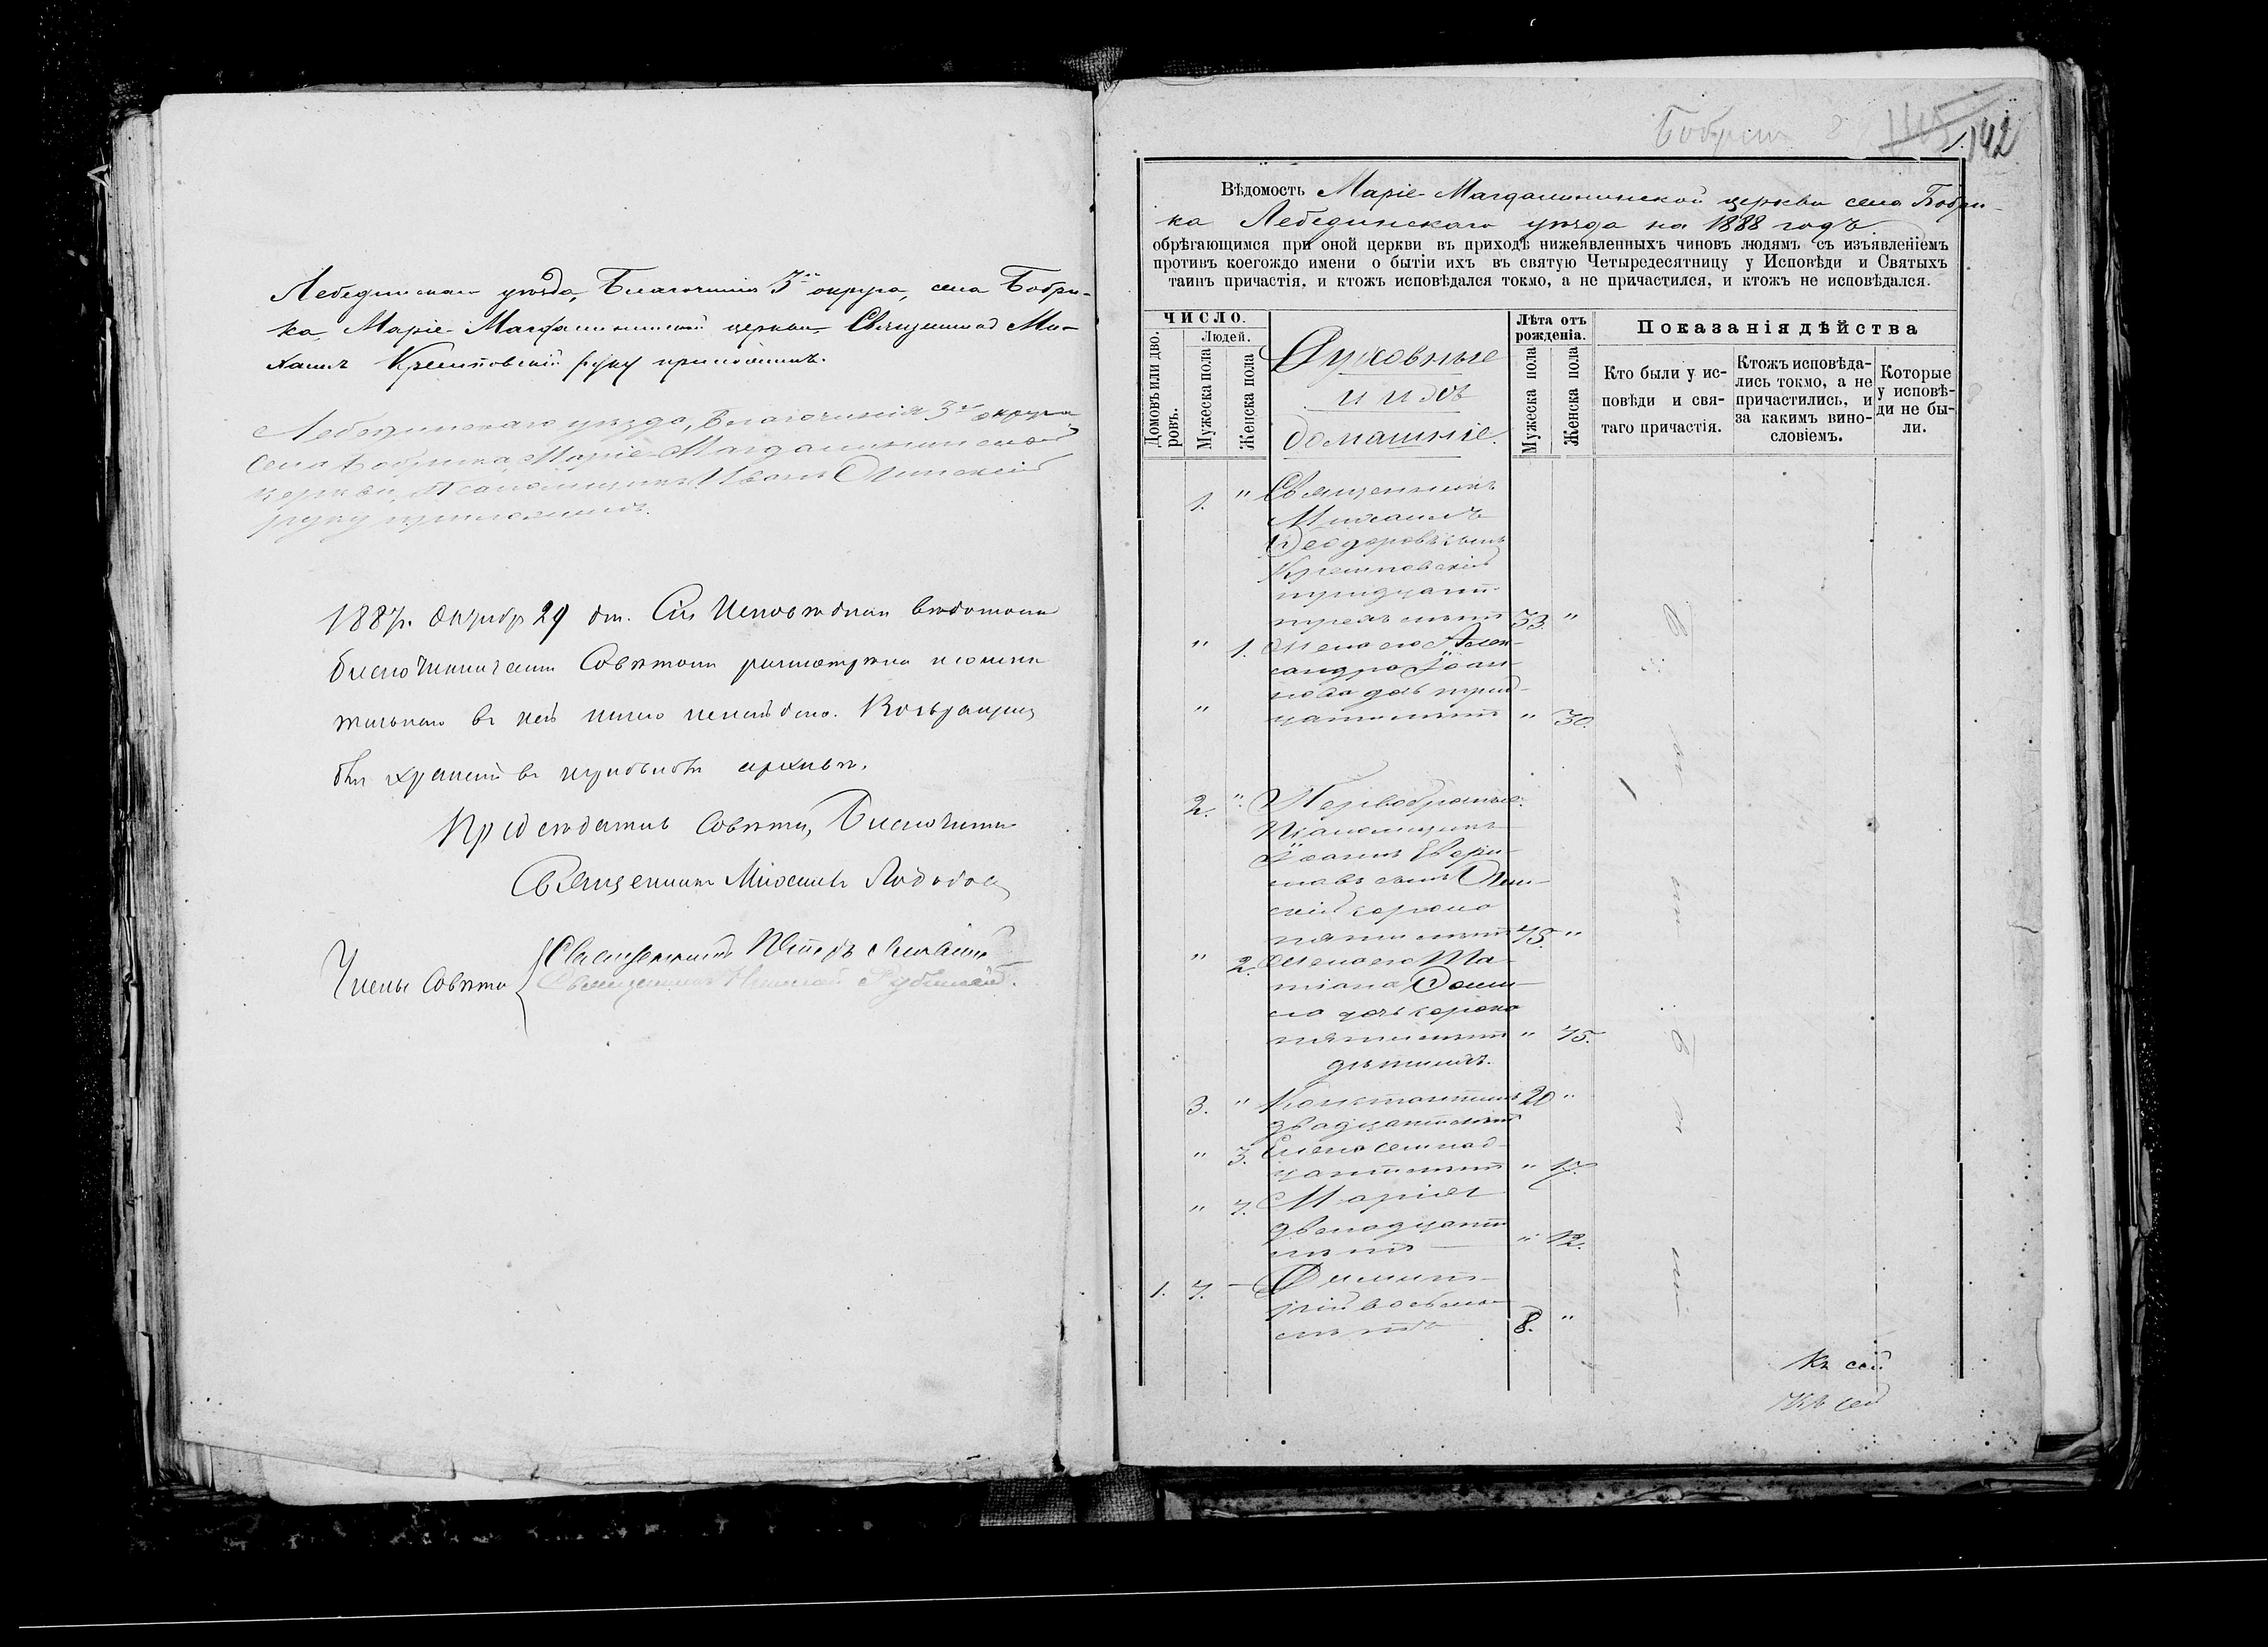 Лебединскаго уѣзда, Благочинія 3го округа, села Бобри-
ка, Маріе-Магдалининской церкви Священникъ Ми-
хаилъ Кремповскій руку приложилъ.
Лебединскаго уѣзда, Благочинія 3го округа
села Бобрика, Маріе-Магдалининской
церкви, Псаломщикъ Иванъ
руку приложилъ.
1887г. Октября 29 дня. Сія Исповѣдная вѣдомость
благочинническимъ Совѣтомъ разсмотрѣна и сомни-
тельнаго въ ней ничего ненайдено.
хранен въ архивѣ.
Предсѣдатель Совѣта, Благочинный
Священникъ Михаилъ
Члены Совѣта
Священникъ Петръ
Священникъ Николай
Бобрик
142
1.
Вѣдомость Маріе-Магдалининской церкви села Бобри-
ка Лебединскаго уѣзда на 1888 годъ
обрѣтающимся при оной церкви въ приходѣ нижеявленныхъ чиновъ людямъ съ изъявленіемъ
противъ коегождо имени о бытіи ихъ въ святую Четыредесятницу у Исповѣди и Святыхъ
таинъ причастія, и ктожъ исповѣдался токмо, а не причастился, и ктожъ не исповѣдался.
ЧИСЛО.
Домовъ или дво-
ровъ.
Людей.
Мужеска пола
Женска пола
Духовные
и ихъ
домашніе.
Лѣта отъ
рожденія.
Мужеска пола
Женска пола
Показанія дѣйства
Кто были у ис-
повѣди и свя-
таго причастія.
Ктожъ исповѣда-
лись токмо, а не
причастились, и
за какимъ вино-
словіемъ.
Которые
у исповѣ-
ди не бы-
ли.
1. " Священникъ
Михаилъ
Ѳеодоровъ сынъ
Кремповскій
тридцати
трехъ лѣтъ 33. "
" 1. Жена его Алек-
сандра Іоан-
нова дочь трид-
" цати лѣтъ " 30.
2. " Первобрачные:
Псаломщикъ
Іоаннъ
сынъ
сорока
пяти лѣтъ 45. "
" 2. Жена его Та-
тіана
дочь сорока
пяти лѣтъ " 45.
дѣти ихъ.
3. " Константинъ 20 "
двадцати лѣтъ
" 3. Елена семнад-
цати лѣтъ " 17.
" 4. Марія
двенадцати
лѣтъ " 12.
1. 4. — Димит-
рій восьми
лѣтъ 8. "
Къ сей
Къ сей